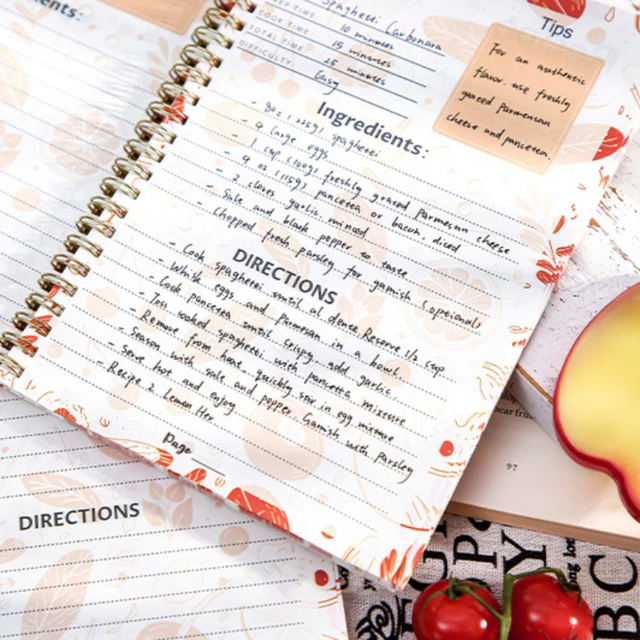 ents:
Spaghesi Carbonara
TIME: 10 minutes
COOK TIME: 15 minutes
TOTAL TIME: 25 minutes
DIFFICULTY: Easy
Tips
For an authentic
flavor use freshly
grated parmensan
cheese and pancetta.
Ingredients:
- 8oz (225g) spaghesi
- 4 large eggs
- 1 cup (100g) freshly grated parmesan cheese
- 4 oz (115g) pancetta or bacon diced
- 2 cloves garlic minced
- Sale and black pepper to taste
- Chopped fresh parsley for garnish (optional)
DIRECTIONS
- Cook spaghesi until al dense Reserve 1/2 cup
- Whisk eggs and parmesan in a bowl.
- Cook pancetta until crispy add garlic.
- Toss cooked spaghetti with pancetta mixture
- Remove from heat quickly stir in egg mixture
- Season with sale and pepper Garnish with parsley
- Serve hot and enjoy
- Recipe 2 Lemon Her
Page
97
DIRECTIONS